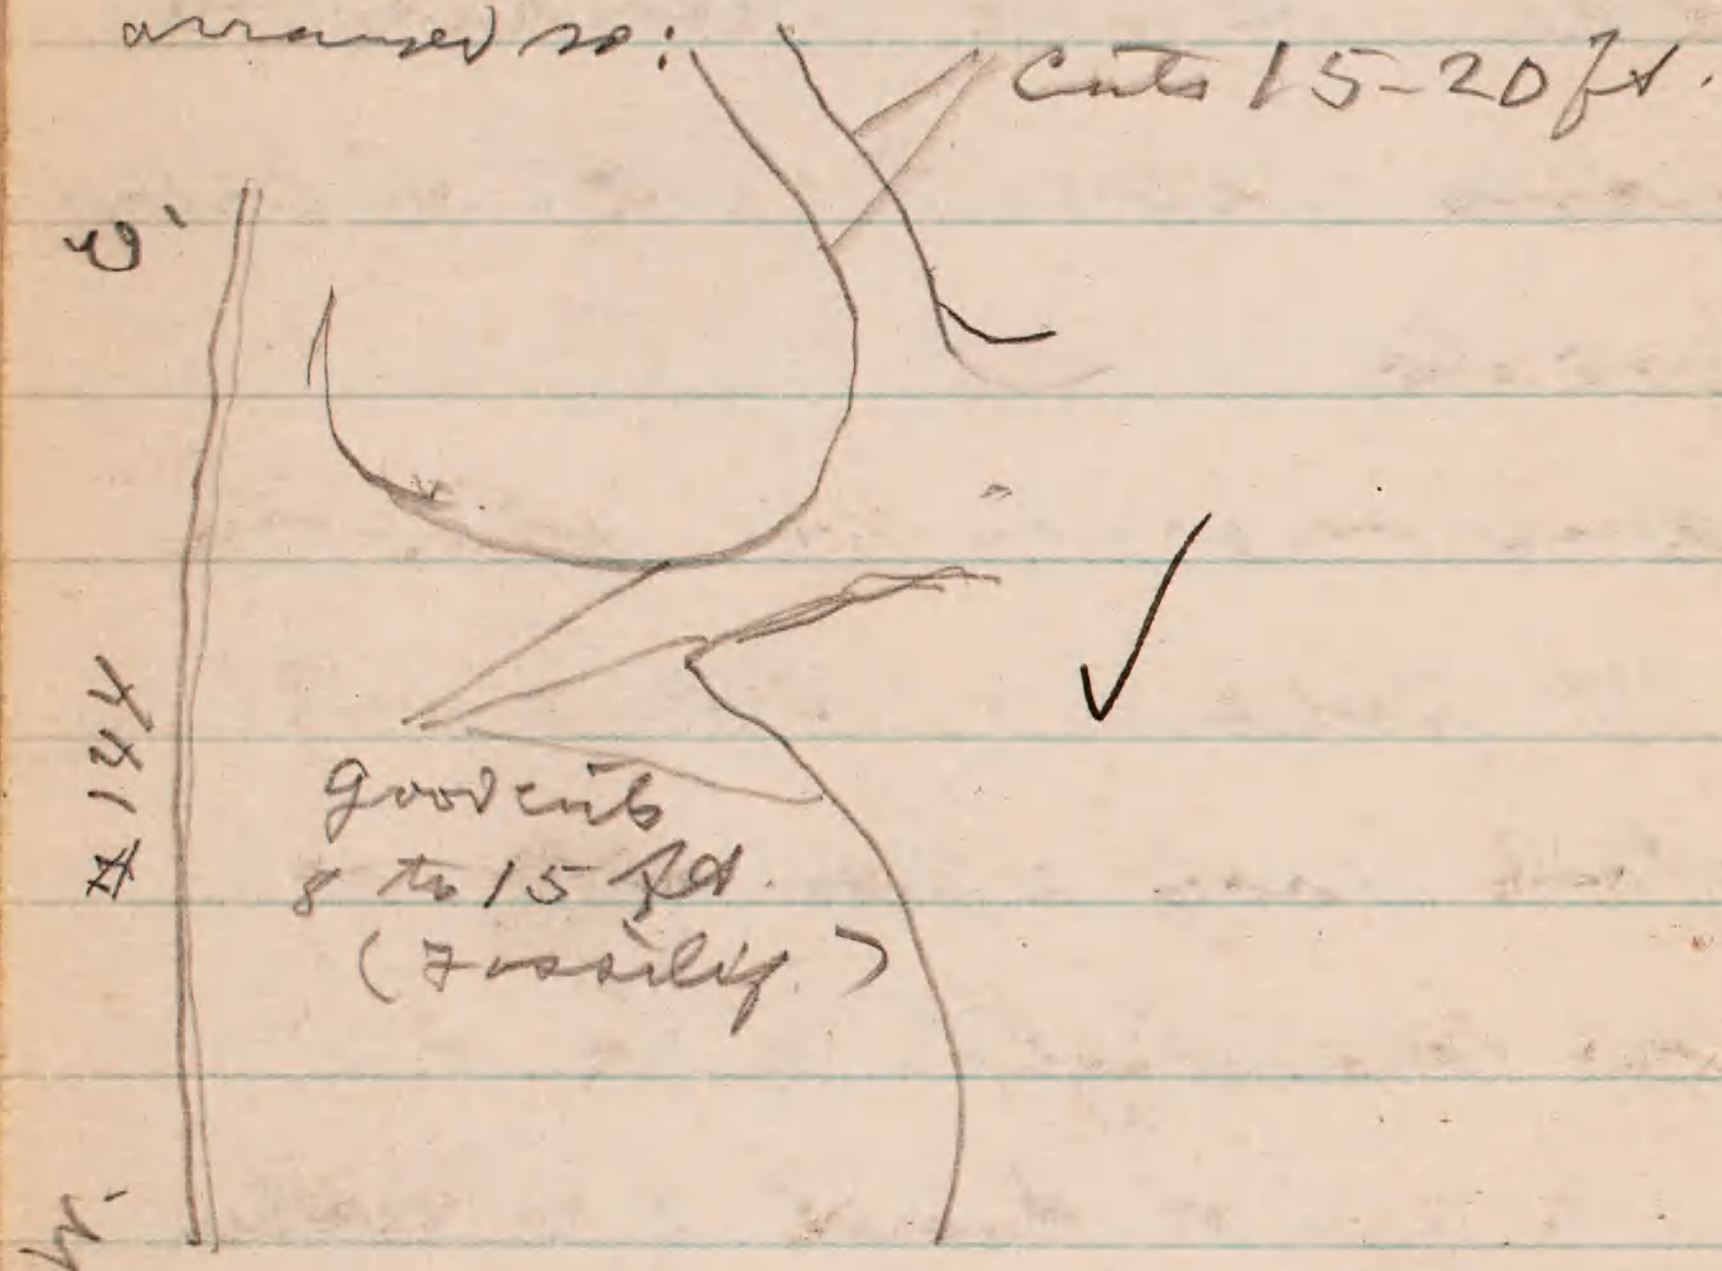 arranged so:
Cuts 15-20 ft.
E.
# 144
W.
Good cuts
8 to 15 ft.
(Fossilif.)